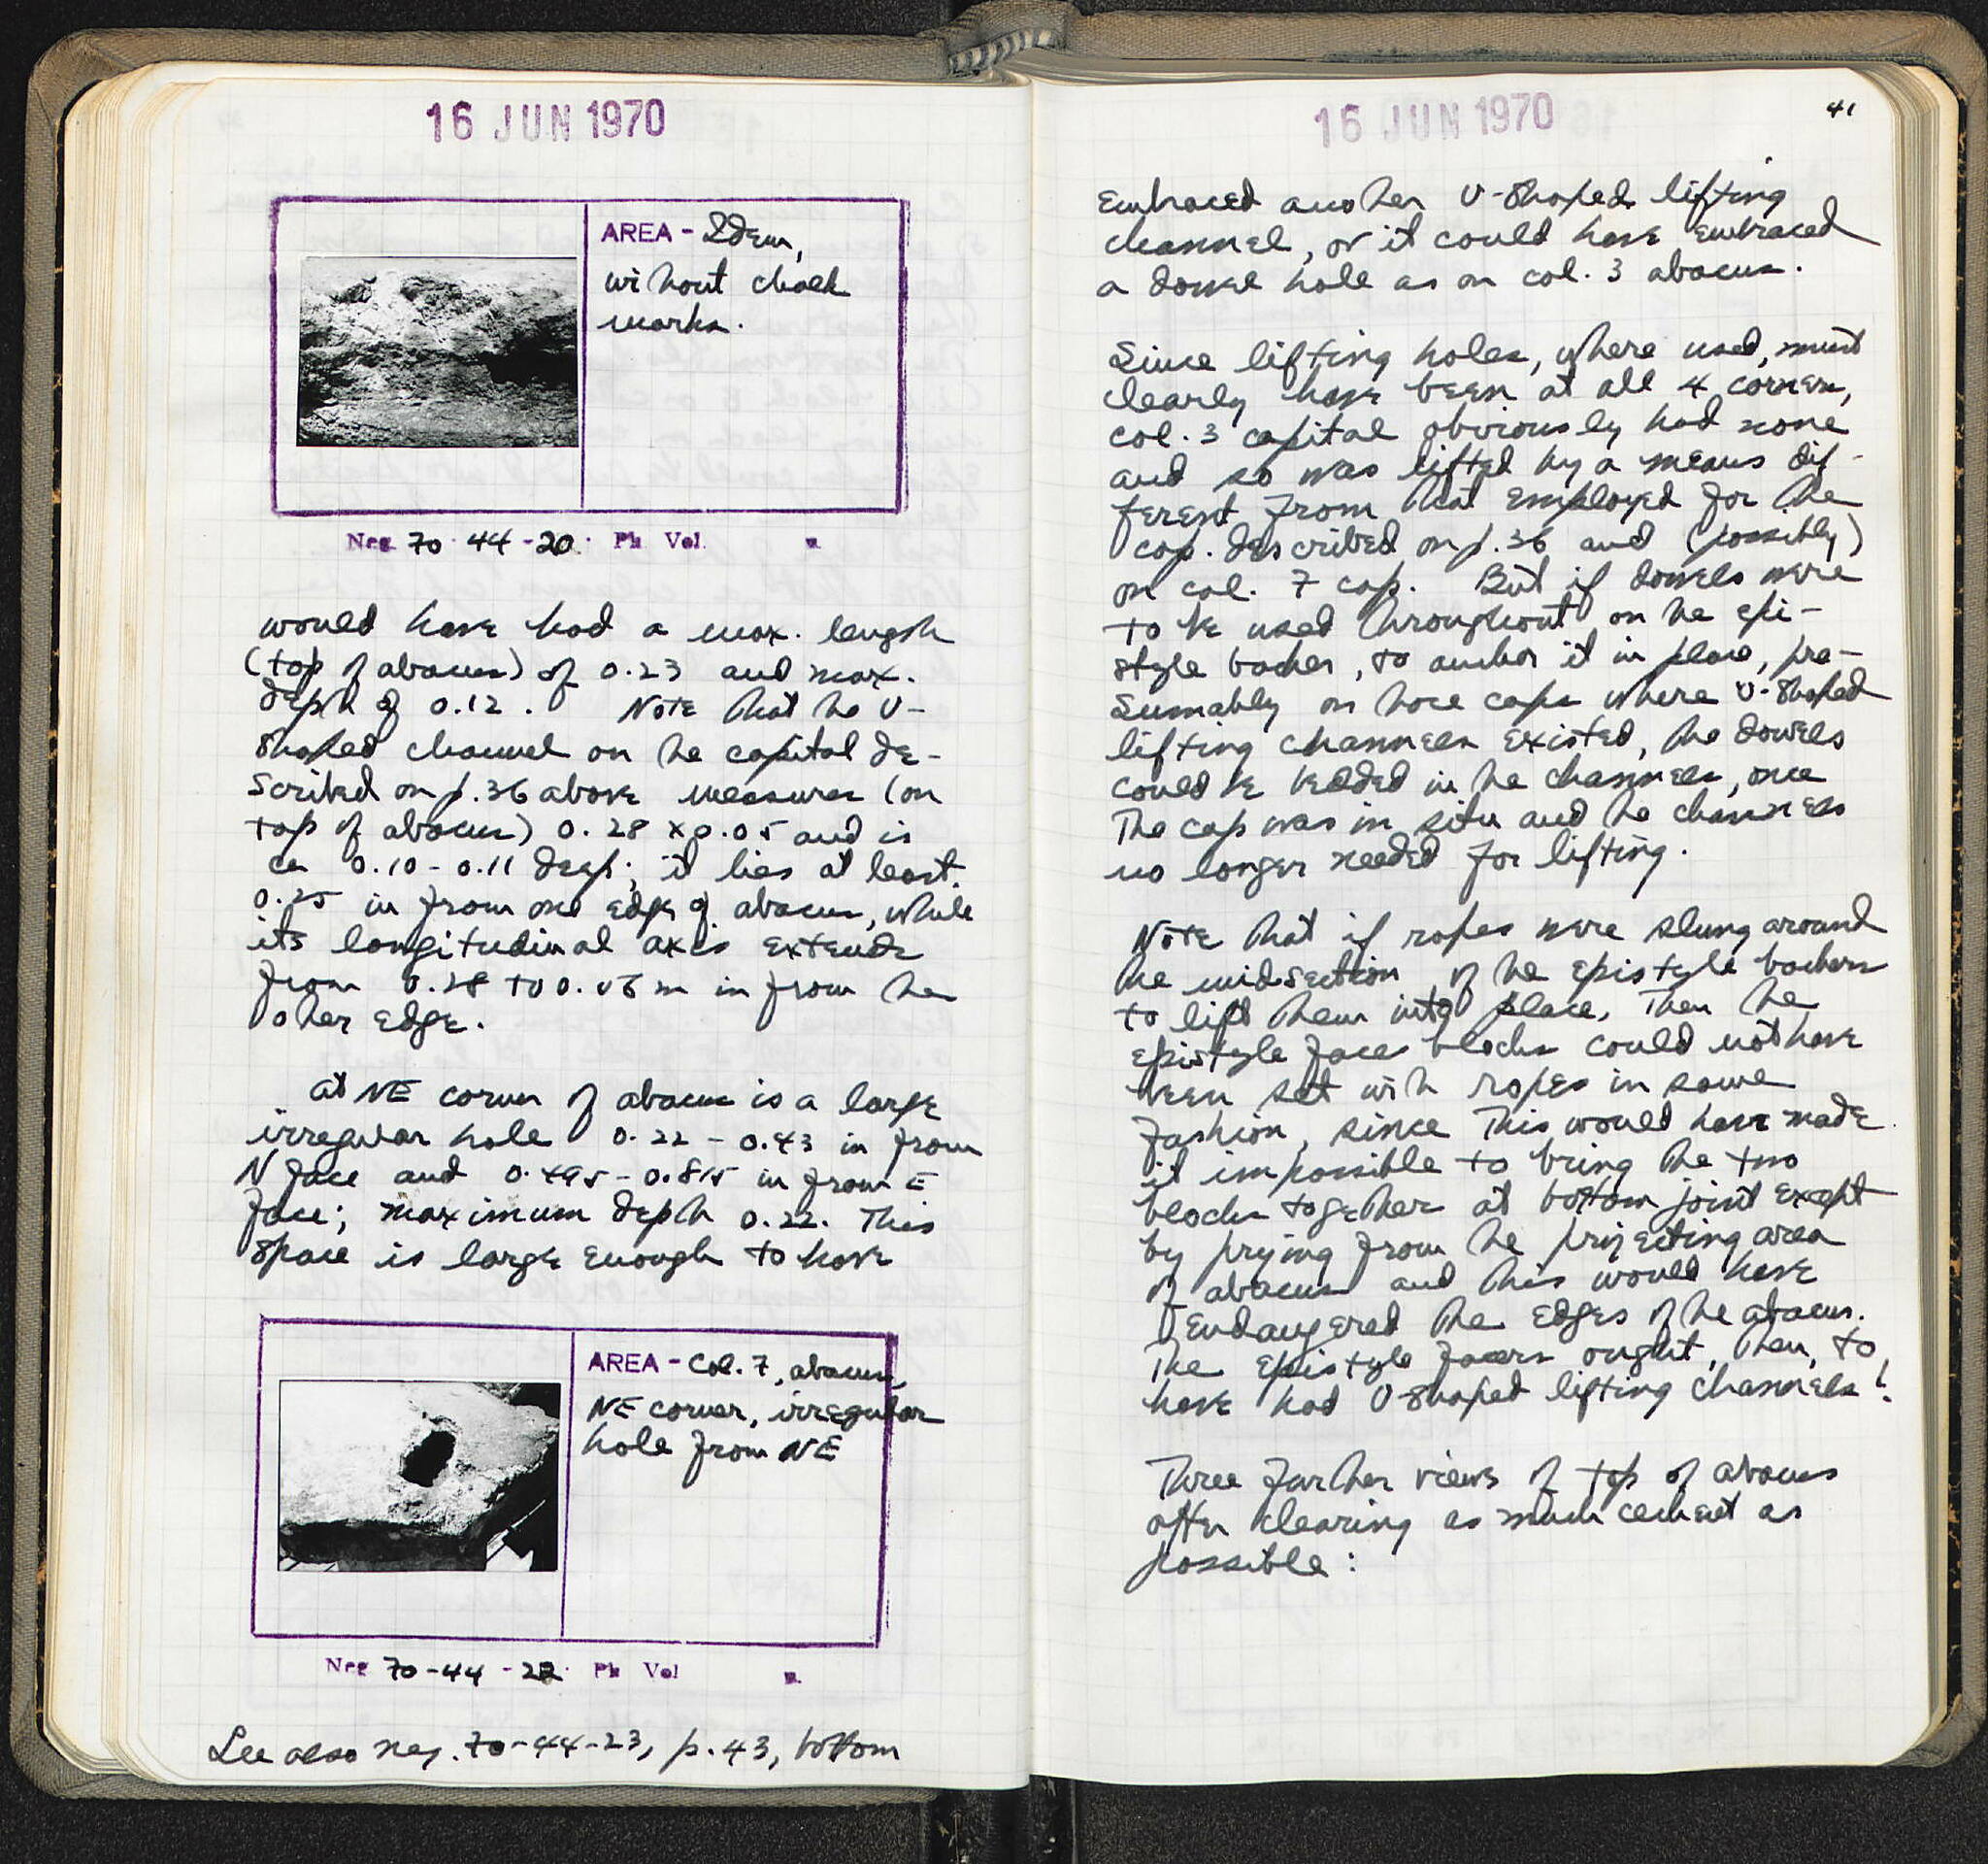 16 JUN 1970
AREA - Idem,
without chalk
marks.
Neg. 70-44-20. Ph Vol. p.
would have had a max. length
(top of abacus) of 0.23 and max.
depth of 0.12. Note that the U-
shaped channel on the capital de-
scribed on p.36 above measures (on
top of abacus) 0.28 x 0.05 and is
ca 0.10 - 0.11 deep; it lies at least
0.25 in from one edge of abacus, while
its longitudinal axis extends
from 0.28 to m in from the
other edge.
at NE corner of abacus is a large
irregular hole 0.22 - 0.43 in from
N face and 0.495 - 0.815 in from E
face; maximum depth 0.22. This
space is large enough to have
AREA - Col. 7, abacus,
NE corner, irregular
hole from NE
Neg 70-44-22. Ph Vol p.
See also neg. 70-44-23, p.43, bottom
16 JUN 1970
41
embraced another U-shaped lifting
channel, or it could have embraced
a dowel hole as on col. 3 abacus.
Since lifting holes, where used, must
clearly have been at all 4 corners,
col. 3 capital obviously had none
and so was lifted by a means dif-
ferent from that employed for the
cap. described on p.36 and (possibly)
on col. 7 cap. But if dowels were
to be used throughout on the epi-
style backer, to anchor it in place, pre-
sumably on those caps where U-shaped
lifting channels existed, the dowels
could be bedded in the channels, once
the cap was in situ and the channels
no longer needed for lifting.
Note that if ropes were slung around
the midsection of the epistyle backers
to lift them into place, then the
epistyle face blocks could not have
been set with ropes in same
fashion, since this would have made
it impossible to bring the two
blocks together at bottom joint except
by prying from the projecting area
of abacus and this would have
endangered the edges of the abacus.
The epistyle facers ought, then, to
have had U-shaped lifting channels!
Three further views of top of abacus
after clearing as much cement as
possible: